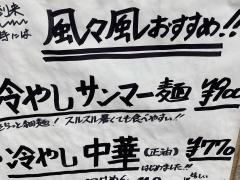 風々風おすすめ!!
冷やしサンマー麺 ¥900
スルスル暑くても食べやすい!!
冷やし中華 (正油) ¥770
はじめました!!